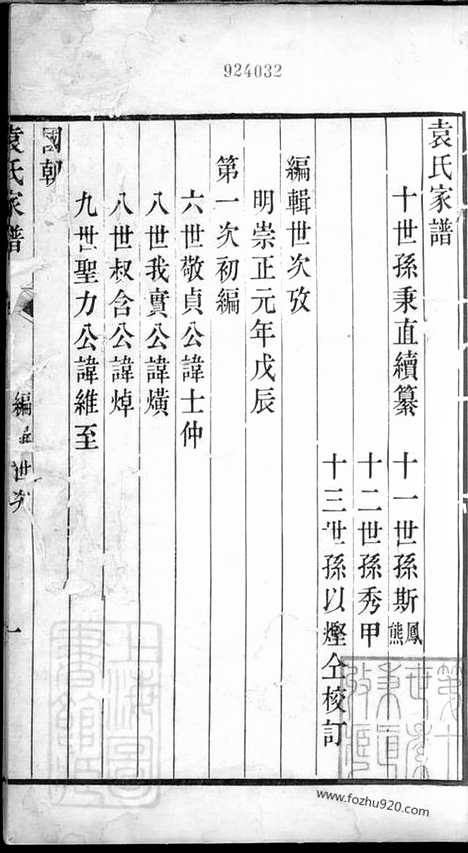 924032
袁氏家譜
十世孫秉直續纂
十一世孫斯鳳熊
十二世孫秀甲
十三世孫以㷣仝校訂
編輯世次攷
明崇正元年戊辰
第一次初編
六世敬貞公諱士仲
八世我實公諱熿
八世叔含公諱焯
九世聖力公諱維至
國朝
袁氏家譜
編 世次
一
上海圖書館藏
www.fozhu920.com